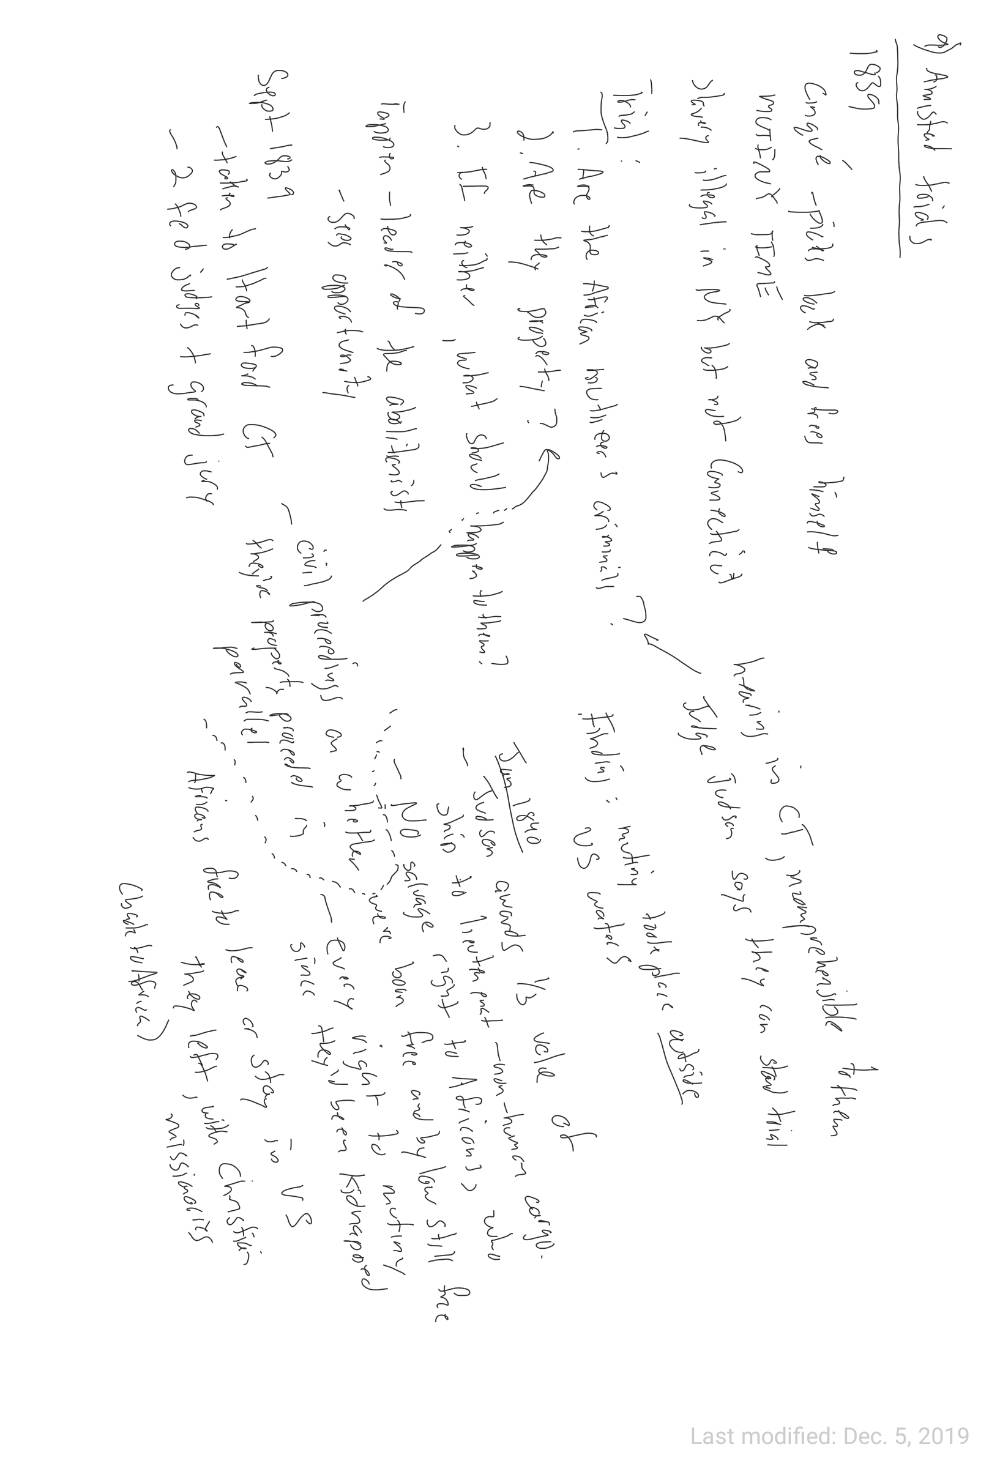 9) Amistad trials
1839
Cinqué - picks lock and frees himself
MUTINY TIME
slavery illegal in NY but not Connecticut
Trial:
1. Are the African mutineers criminals?
2. Are they property?
3. If neither, what should happen to them?
Tappen - leader of the abolitionists
- sees opportunity
Sept 1839
- taken to Hartford CT
- 2 fed judges + grand jury
- civil proceedings on whether
they're property proceeded in
parallel
hearing in CT, incomprehensible to them
Judge Judson says they can stand trial
Finding: mutiny took place outside
US waters
Jan 1840
- Judson awards 1/3 value of
ship to lieutenant - non-human cargo.
- No salvage right to Africans, who
were born free and by law still free
- every right to mutiny
since they'd been kidnapped
Africans free to leave or stay in US
they left, with Christian
missionaries
(back to Africa)
Last modified: Dec. 5, 2019